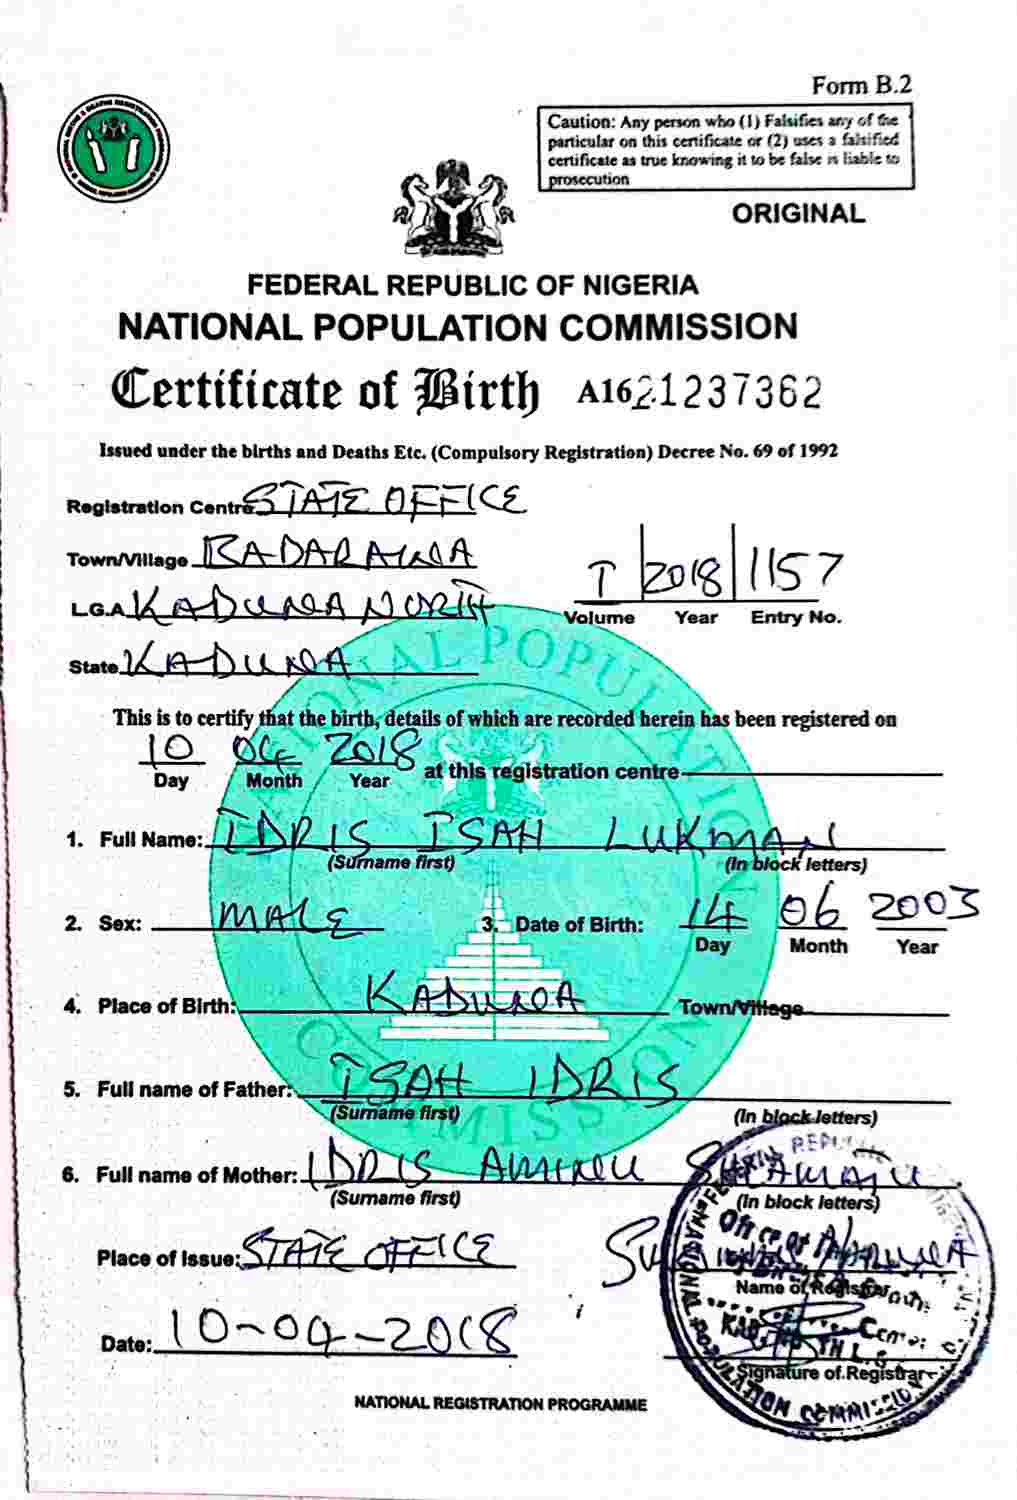 Form B.2
Caution: Any person who (1) Falsifies any of the
particular on this certificate or (2) uses a falsified
certificate as true knowing it to be false is liable to
prosecution
ORIGINAL
FEDERAL REPUBLIC OF NIGERIA
NATIONAL POPULATION COMMISSION
Certificate of Birth A1621237362
Issued under the births and Deaths Etc. (Compulsory Registration) Decree No. 69 of 1992
Registration Centre STATE OFFICE
Town/Village BADARAWA
L.G.A KADUNA NORTH
I 2018 1157
Volume Year Entry No.
State KADUNA
NATIONAL POPULATION COMMISSION
This is to certify that the birth, details of which are recorded herein has been registered on
10 2018
Day Month Year at this registration centre
1. Full Name: IDRIS ISAH LUKMAN
(Surname first) (In block letters)
2. Sex: MALE 3. Date of Birth: 14 06 2003
Day Month Year
4. Place of Birth: KADUNA Town/Village
5. Full name of Father: ISAH IDRIS
(Surname first) (In block letters)
6. Full name of Mother: IDRIS AMINU
(Surname first) (In block letters)
Place of Issue: STATE OFFICE
Name of Registrar
Date: 10-04-2018
Signature of Registrar
NATIONAL POPULATION COMMISSION
NATIONAL REGISTRATION PROGRAMME